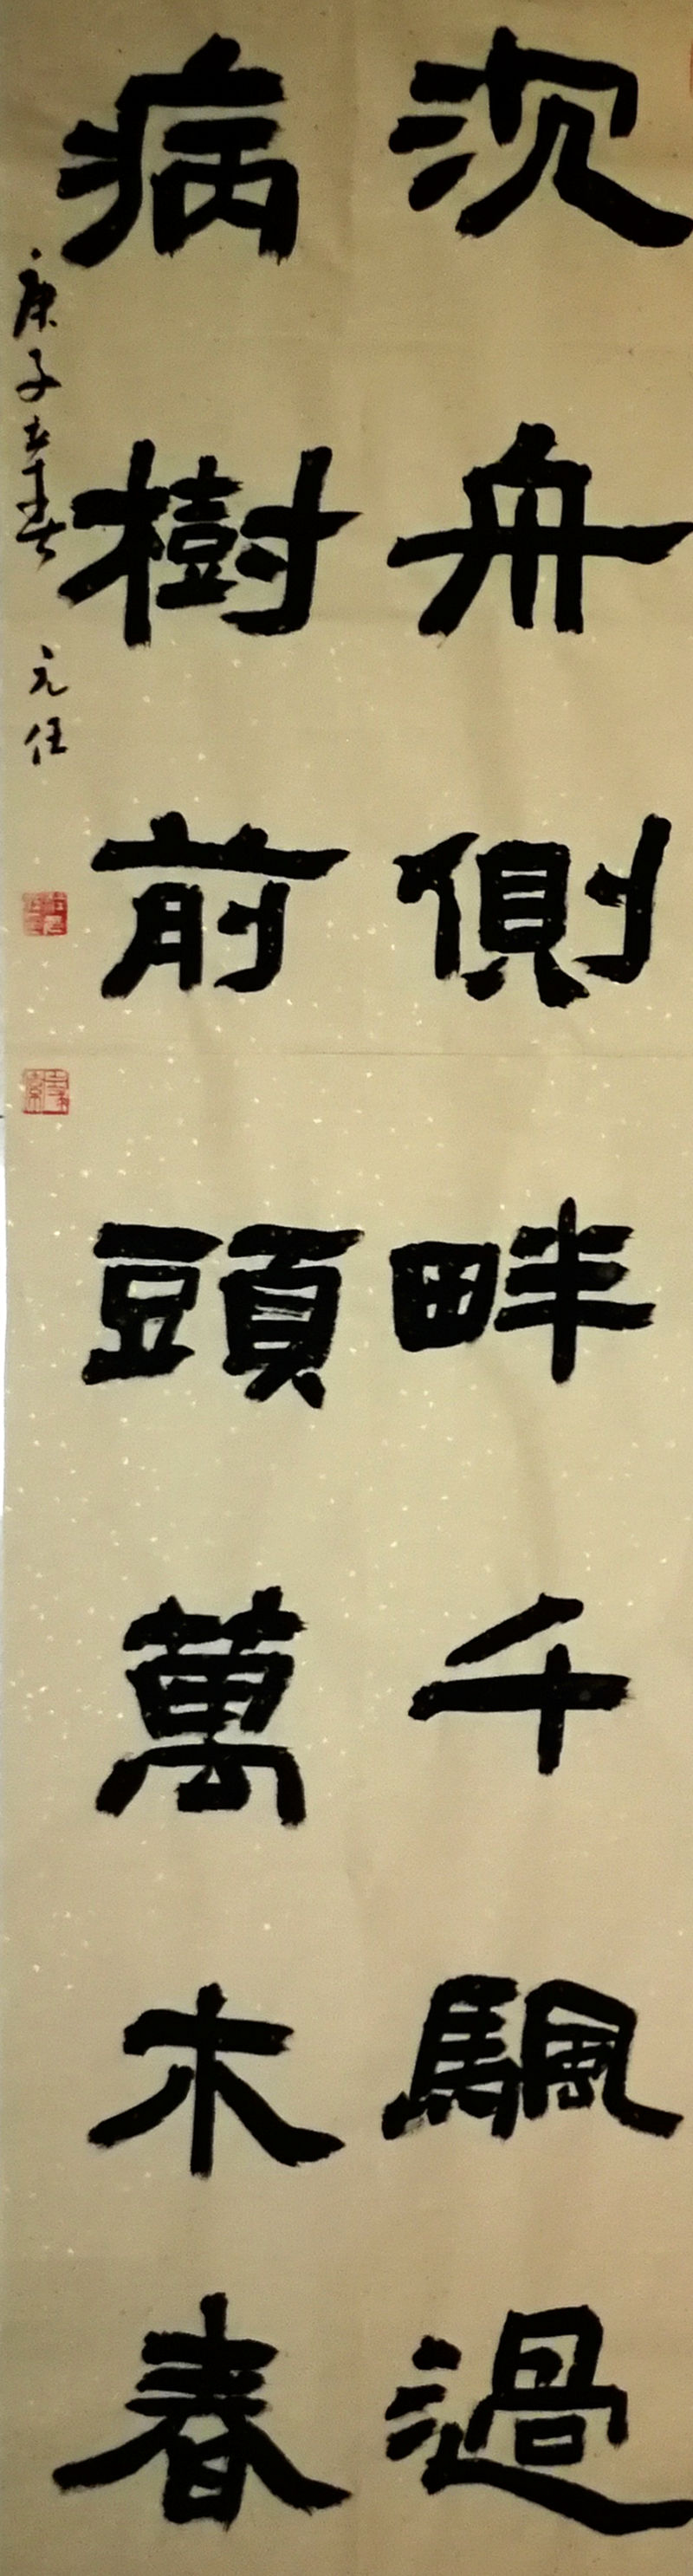 沉舟側畔千颿過
病樹前頭萬木春
庚子立春 元任